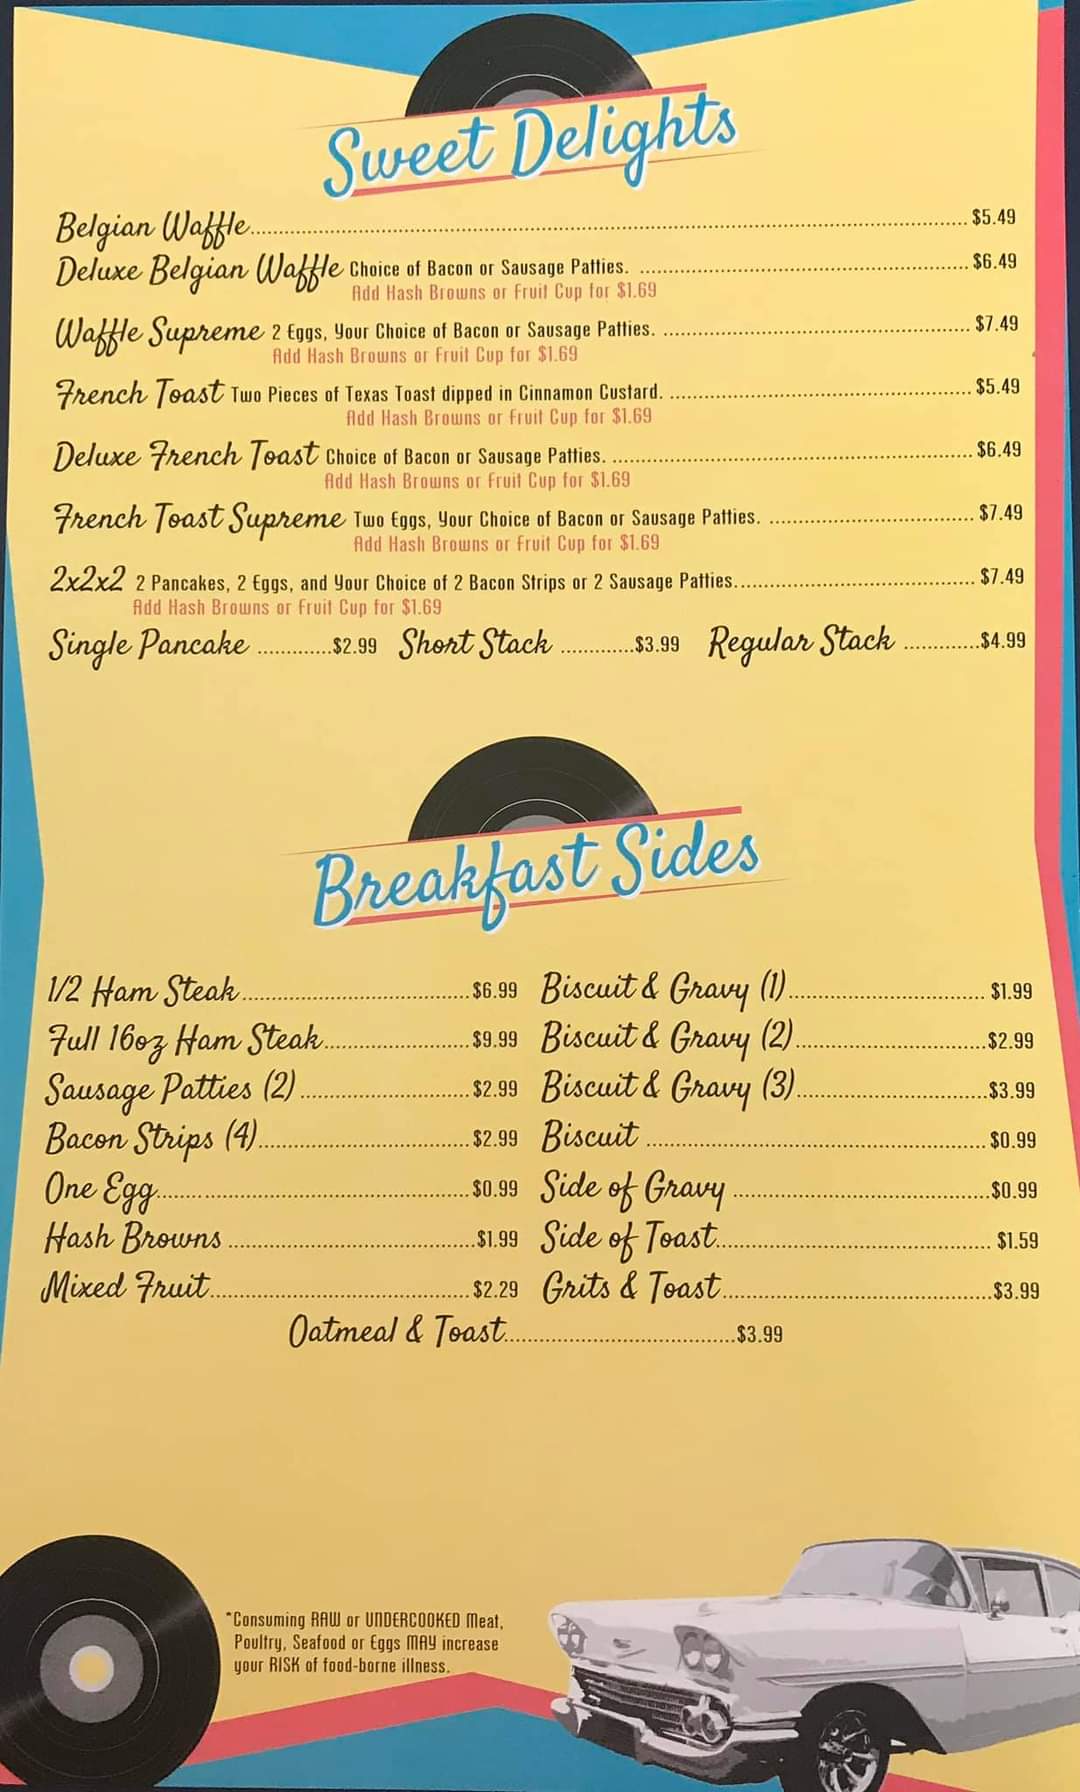 Sweet Delights
Belgian Waffle $5.49
Deluxe Belgian Waffle Choice of Bacon or Sausage Patties. $6.49
Add Hash Browns or Fruit Cup for $1.69
Waffle Supreme 2 Eggs, Your Choice of Bacon or Sausage Patties. $7.49
Add Hash Browns or Fruit Cup for $1.69
French Toast Two Pieces of Texas Toast dipped in Cinnamon Custard. $5.49
Add Hash Browns or Fruit Cup for $1.69
Deluxe French Toast Choice of Bacon or Sausage Patties. $6.49
Add Hash Browns or Fruit Cup for $1.69
French Toast Supreme Two Eggs, Your Choice of Bacon or Sausage Patties. $7.49
Add Hash Browns or Fruit Cup for $1.69
2x2x2 2 Pancakes, 2 Eggs, and Your Choice of 2 Bacon Strips or 2 Sausage Patties. $7.49
Add Hash Browns or Fruit Cup for $1.69
Single Pancake $2.99 Short Stack $3.99 Regular Stack $4.99
Breakfast Sides
1/2 Ham Steak $6.99
Full 16oz Ham Steak $9.99
Sausage Patties (2) $2.99
Bacon Strips (4) $2.99
One Egg $0.99
Hash Browns $1.99
Mixed Fruit $2.29
Biscuit & Gravy (1) $1.99
Biscuit & Gravy (2) $2.99
Biscuit & Gravy (3) $3.99
Biscuit $0.99
Side of Gravy $0.99
Side of Toast $1.59
Grits & Toast $3.99
Oatmeal & Toast $3.99
*Consuming RAW or UNDERCOOKED Meat,
Poultry, Seafood or Eggs MAY increase
your RISK of food-borne illness.